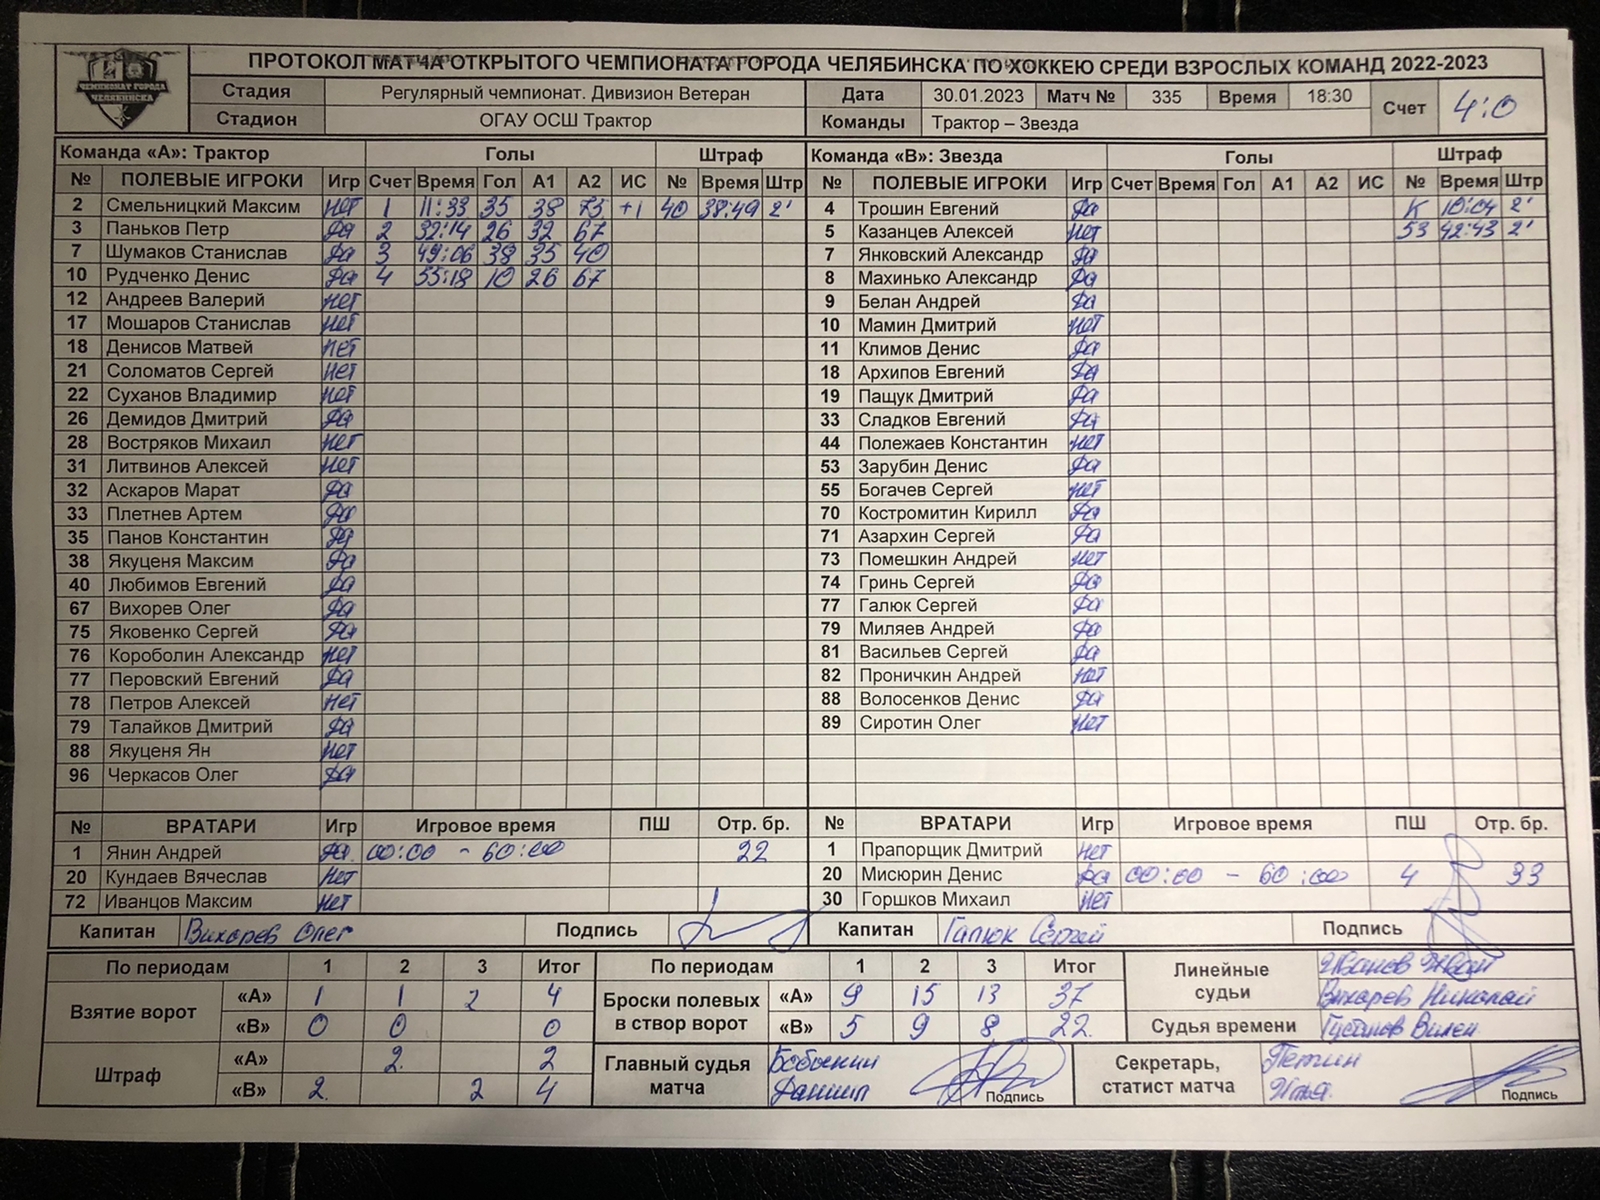 ПРОТОКОЛ МАТЧА ОТКРЫТОГО ЧЕМПИОНАТА ГОРОДА ЧЕЛЯБИНСКА ПО ХОККЕЮ СРЕДИ ВЗРОСЛЫХ КОМАНД 2022-2023
ЧЕМПИОНАТ ГОРОДА
ЧЕЛЯБИНСКА
Стадия Регулярный чемпионат. Дивизион Ветеран Дата 30.01.2023 Матч № 335 Время 18:30 Счет 4:0
Стадион ОГАУ ОСШ Трактор Команды Трактор – Звезда
Команда «А»: Трактор Голы Штраф Команда «В»: Звезда Голы Штраф
№ ПОЛЕВЫЕ ИГРОКИ Игр Счет Время Гол А1 А2 ИС № Время Штр № ПОЛЕВЫЕ ИГРОКИ Игр Счет Время Гол А1 А2 ИС № Время Штр
2 Смельницкий Максим нет 1 11:33 35 38 75 +1 40 38:49 2' 4 Трошин Евгений да К 10:04 2'
3 Паньков Петр да 2 32:14 26 32 67 5 Казанцев Алексей нет 53 42:43 2'
7 Шумаков Станислав да 3 49:06 38 35 40 7 Янковский Александр да
10 Рудченко Денис да 4 55:18 10 26 67 8 Махинько Александр да
12 Андреев Валерий нет 9 Белан Андрей да
17 Мошаров Станислав нет 10 Мамин Дмитрий нет
18 Денисов Матвей нет 11 Климов Денис да
21 Соломатов Сергей нет 18 Архипов Евгений да
22 Суханов Владимир нет 19 Пащук Дмитрий да
26 Демидов Дмитрий да 33 Сладков Евгений да
28 Востряков Михаил нет 44 Полежаев Константин нет
31 Литвинов Алексей нет 53 Зарубин Денис да
32 Аскаров Марат да 55 Богачев Сергей нет
33 Плетнев Артем да 70 Костромитин Кирилл да
35 Панов Константин да 71 Азархин Сергей да
38 Якуценя Максим да 73 Помешкин Андрей нет
40 Любимов Евгений да 74 Гринь Сергей да
67 Вихорев Олег да 77 Галюк Сергей да
75 Яковенко Сергей да 79 Миляев Андрей да
76 Короболин Александр нет 81 Васильев Сергей да
77 Перовский Евгений да 82 Проничкин Андрей нет
78 Петров Алексей нет 88 Волосенков Денис да
79 Талайков Дмитрий да 89 Сиротин Олег нет
88 Якуценя Ян нет
96 Черкасов Олег да
№ ВРАТАРИ Игр Игровое время ПШ Отр. бр. № ВРАТАРИ Игр Игровое время ПШ Отр. бр.
1 Янин Андрей да 00:00 - 60:00 22 1 Прапорщик Дмитрий нет
20 Кундаев Вячеслав нет 20 Мисюрин Денис да 00:00 - 60:00 4 33
72 Иванцов Максим нет 30 Горшков Михаил нет
Капитан Вихорев Олег Подпись Капитан Галюк Сергей Подпись
По периодам 1 2 3 Итог По периодам 1 2 3 Итог Линейные судьи Иванов Иван
Взятие ворот «А» 1 1 2 4 Броски полевых в створ ворот «А» 9 15 13 37 Вихарев Николай
«В» 0 0 0 «В» 5 9 8 22 Судья времени Густинов Вилен
Штраф «А» 2 2 Главный судья матча Бобыкин Секретарь, статист матча Петин
«В» 2 2 4 Даниил Подпись Илья Подпись